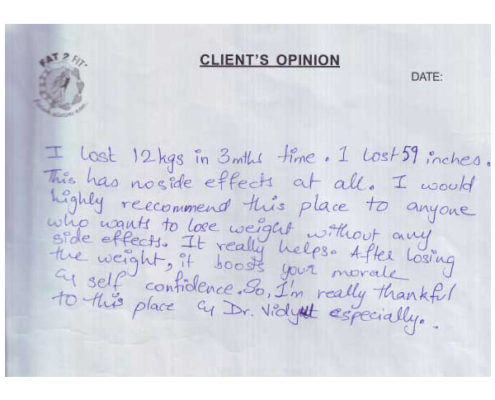 FAT 2 FIT
CLIENT'S OPINION
DATE:
I lost 12kgs in 3mths time. I lost 59 inches.
This has no side effects at all. I would
highly reecommend this place to anyone
who wants to lose weight without any
side effects. It really helps. After losing
the weight, it boosts your morale
& self confidence. So, I'm really thankful
to this place & Dr. especially.